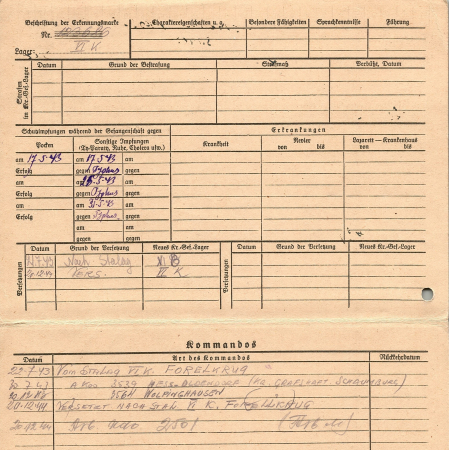 Beschriftung der Erkennungsmarke
Nr.
Lager: VI K
Charaktereigenschaften u. a.
Besondere Fähigkeiten
Sprachkenntnisse
Führung
Strafen im Kr.-Gef.-Lager
Datum Grund der Bestrafung Strafmaß Verbüßt, Datum
Schutzimpfungen während der Gefangenschaft gegen
Erkrankungen
Pocken
Sonstige Impfungen
(Ty-Paraty, Ruhr, Cholera usw.)
Krankheit
Revier
von bis
Lazarett — Krankenhaus
von bis
am 17.5.43 am 17.5.43
Erfolg gegen Typhus
am am
Erfolg gegen Typhus
am am 31.5.43
Erfolg gegen
am
gegen
Versetzungen
Datum Grund der Versetzung Neues Kr.-Gef.-Lager
Nach Stalag
VERS. VI K
Versetzungen
Datum Grund der Versetzung Neues Kr.-Gef.-Lager
Kommandos
Datum Art des Kommandos Rückkehrdatum
22.7.43 Vom Stalag VI K. FORELKRUG
A Kdo 3539 HESS. OLDENDORF (KR. GRAFSCHAFT SCHAUMBURG)
WÖLPINGHAUSEN
20.12.44 VERSETZT NACH STAL VI K. FORELLKRUG
20.12.44 Arb Kdo 2501